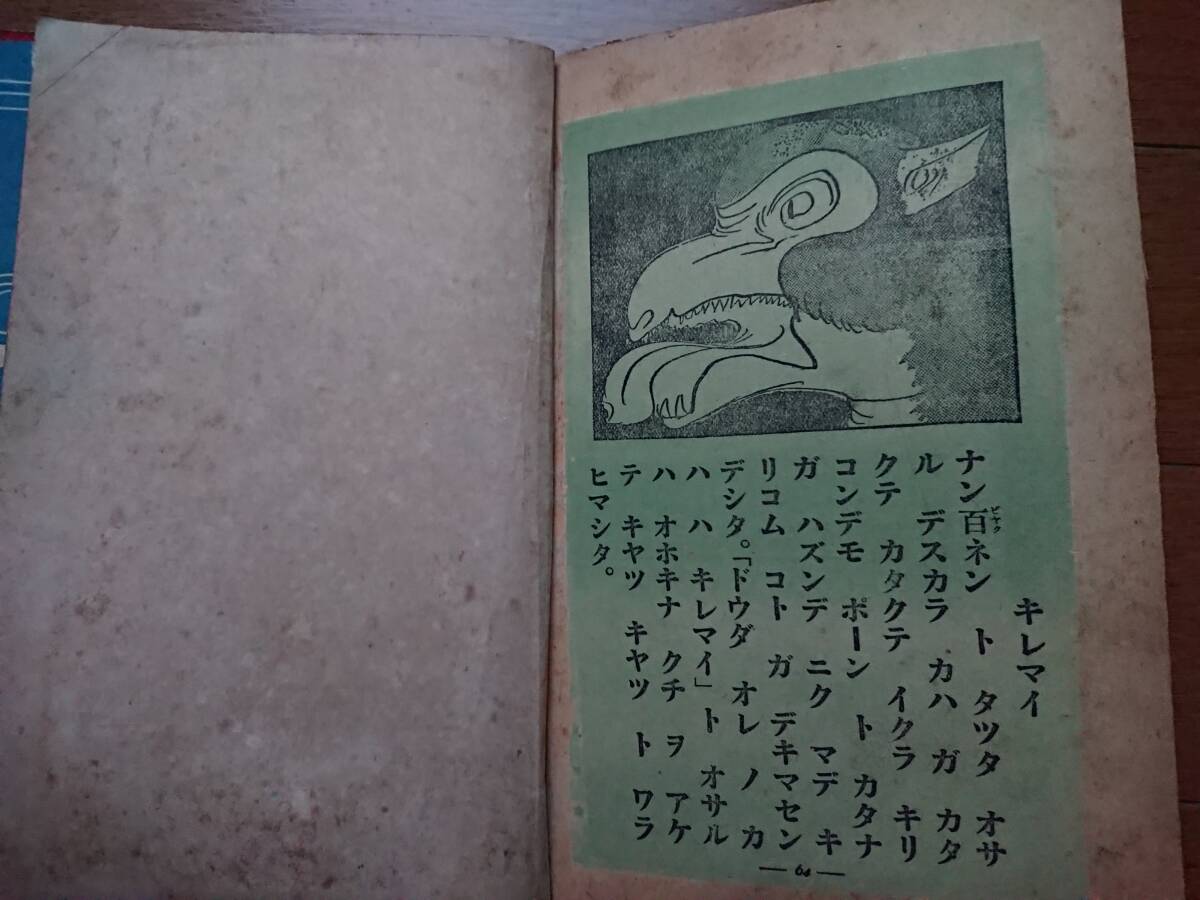 キレマイ
ナン百ネン ト タツタ オサ
ビヤク
ル デスカラ カハ ガ カタ
クテ カタクテ イクラ キリ
コンデモ ポーン ト カタナ
ガ ハズンデ ニク マデ キ
リコム コト ガ デキマセン
デシタ。「ドウダ オレ ノ カ
ハ ハ キレマイ」ト オサル
ハ オホキナ クチ ヲ アケ
テ キヤツ キヤツ ト ワラ
ヒマシタ。